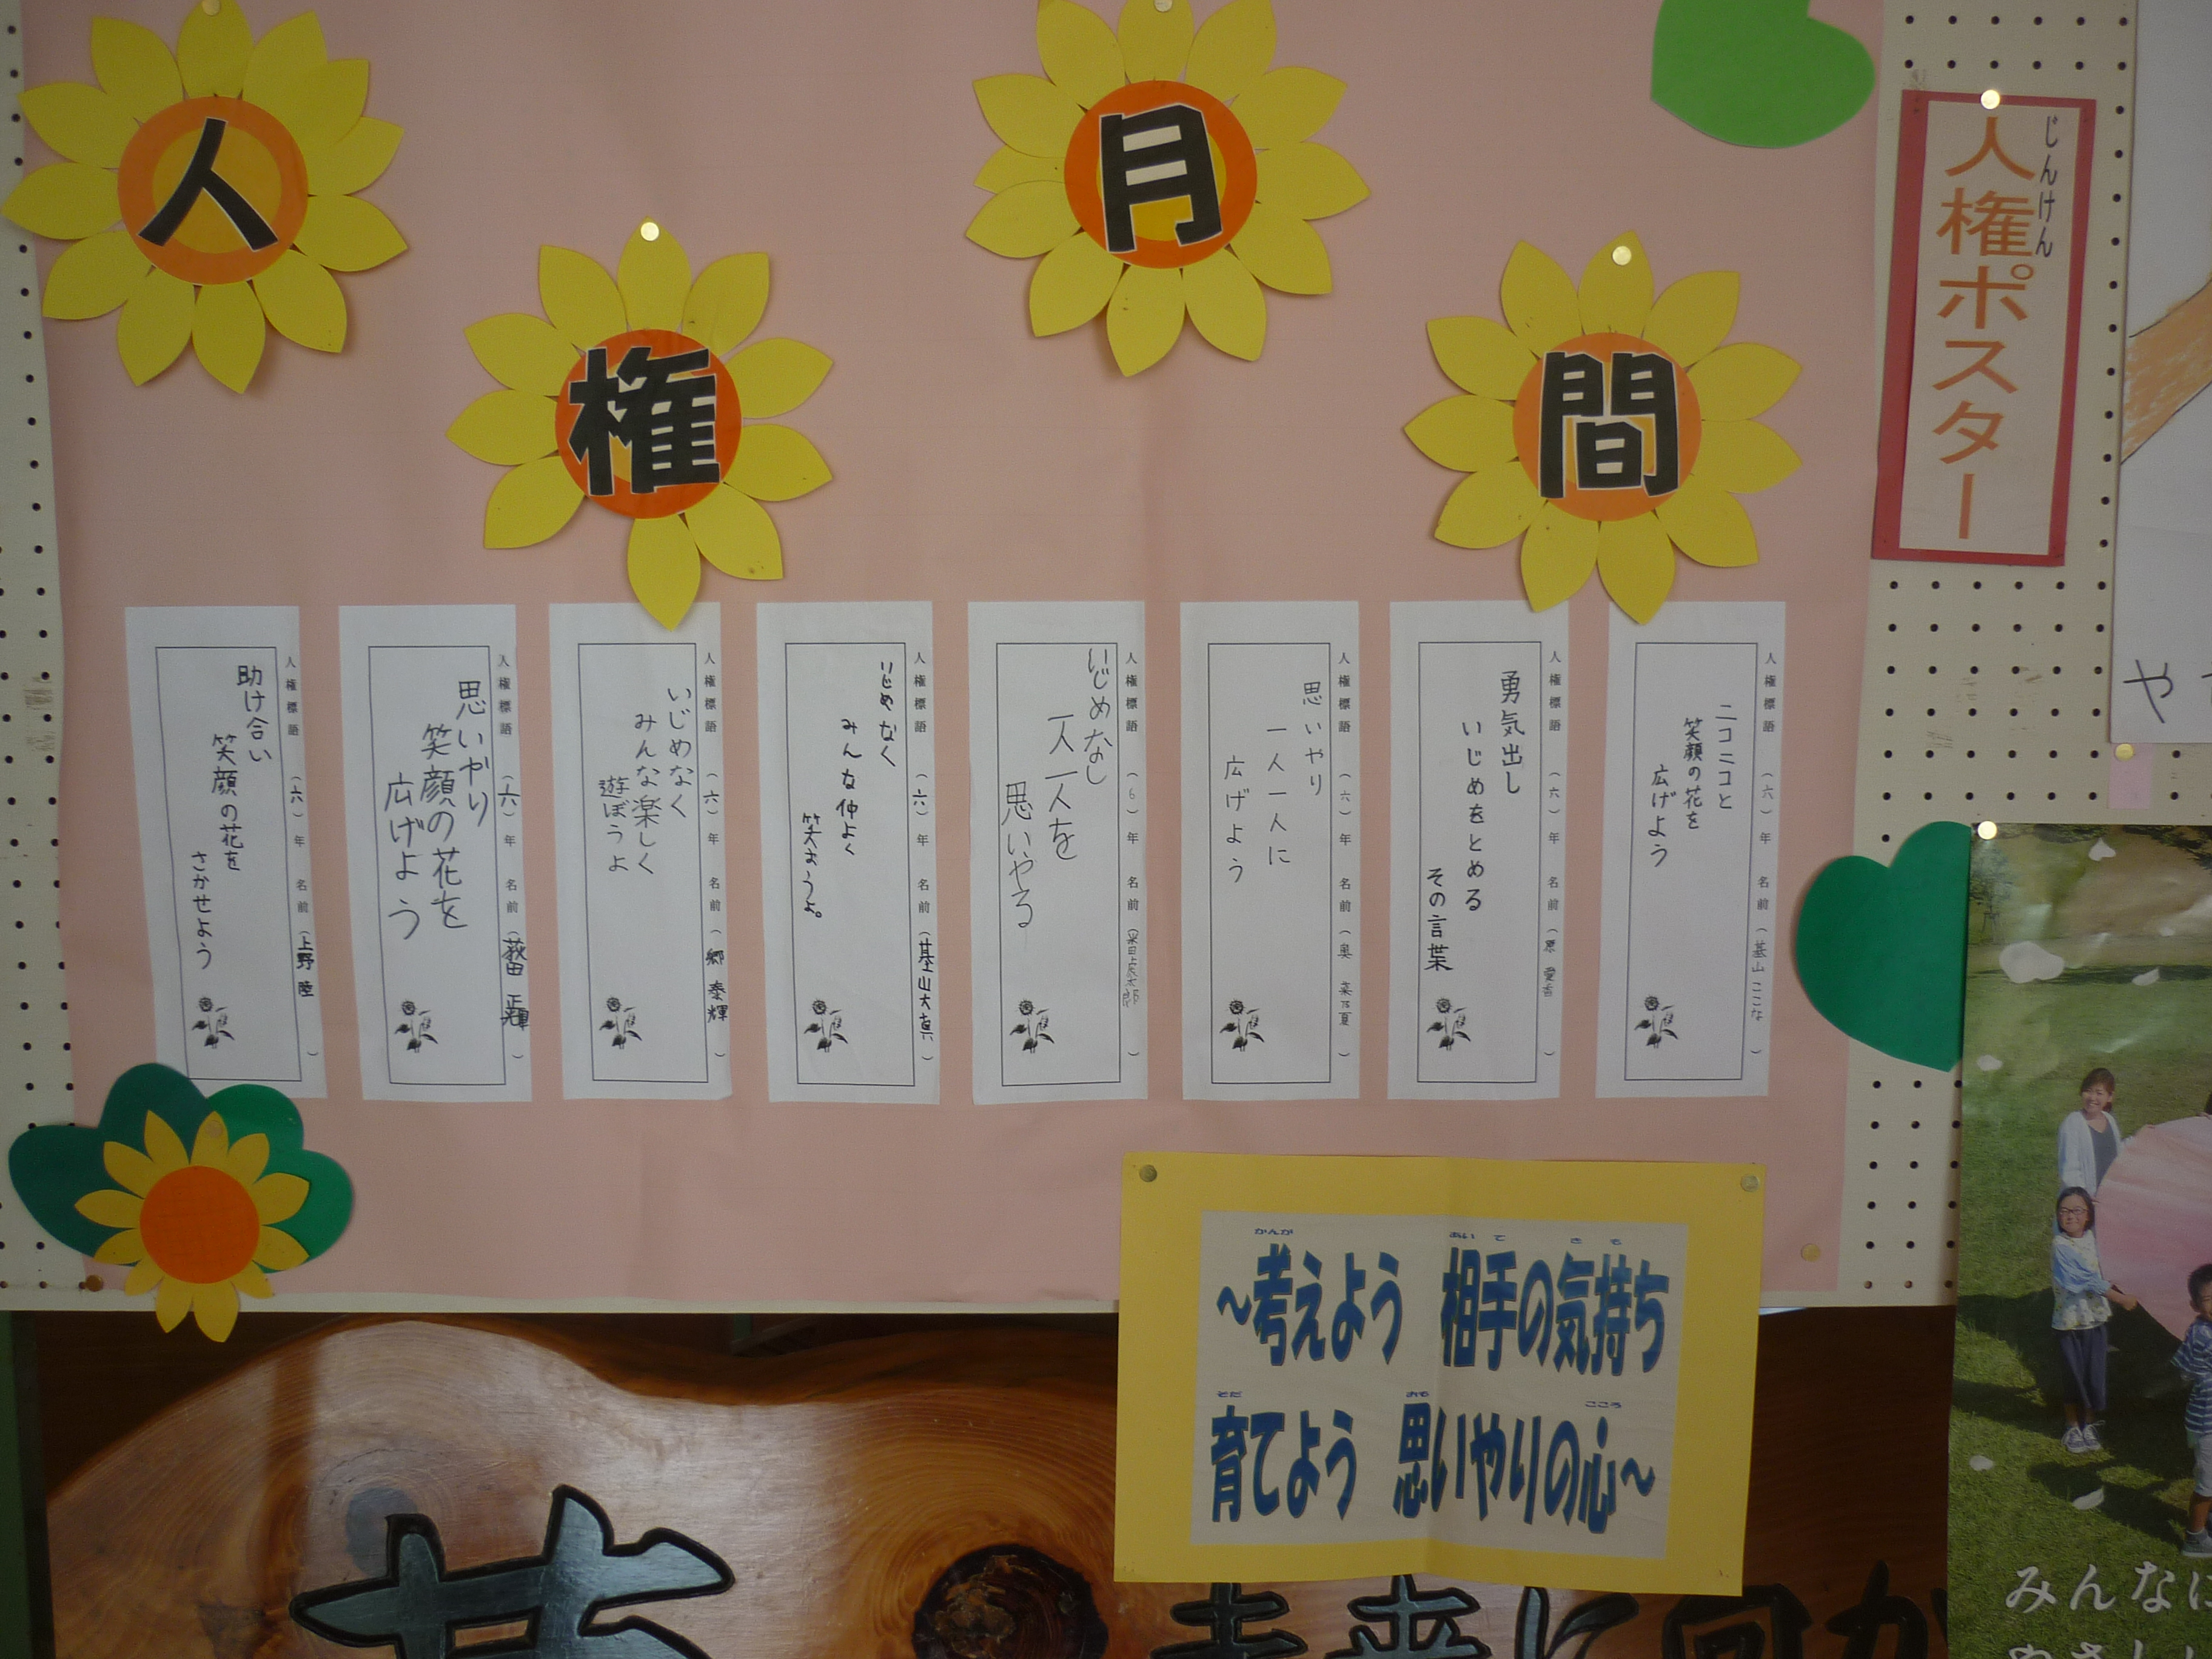 人権月間
じんけん
人権ポスター
人権標語 （六）年 名前（基山 ここな）
ニコニコと
笑顔の花を
広げよう
人権標語 （六）年 名前（原 愛香）
勇気出し
いじめをとめる
その言葉
人権標語 （六）年 名前（奥 菜乃夏）
思いやり
一人一人に
広げよう
人権標語 （6）年 名前
いじめなし
一人一人を
思いやる
人権標語 （六）年 名前（基山大真）
いじめなく
みんな仲よく
笑おうよ。
人権標語 （六）年 名前（郷 泰輝）
いじめなく
みんな楽しく
遊ぼうよ
人権標語 （六）年 名前（荻田 正輝）
思いやり
笑顔の花を
広げよう
人権標語 （六）年 名前（上野 陸）
助け合い
笑顔の花を
さかせよう
かんが あいて きも
～考えよう 相手の気持ち
そだ おも こころ
育てよう 思いやりの心～
や
みんなに
未来に向か